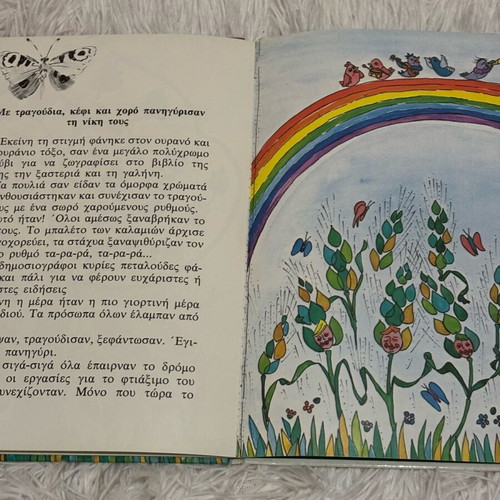 Με τραγούδια, κέφι και χορό πανηγύρισαν
τη νίκη τους
Εκείνη τη στιγμή φάνηκε στον ουρανό και
ουράνιο τόξο, σαν ένα μεγάλο πολύχρωμο
ύβι για να ζωγραφίσει στο βιβλίο της
ης την ξαστεριά και τη γαλήνη.
α πουλιά σαν είδαν τα όμορφα χρώματά
νθουσιάστηκαν και συνέχισαν το τραγού-
υς με ένα σωρό χαρούμενους ρυθμούς.
υτό ήταν! Όλοι αμέσως ξαναβρήκαν το
τους. Το μπαλέτο των καλαμιών άρχισε
νοχορεύει, τα στάχυα ξαναψιθύριζαν τον
ο ρυθμό τα-ρα-ρά, τα-ρα-ρά...
δημοσιογράφοι κυρίες πεταλούδες φά-
και πάλι για να φέρουν ευχάριστες ή
στες ειδήσεις
νη η μέρα ήταν η πιο γιορτινή μέρα
διού. Τα πρόσωπα όλων έλαμπαν από
ψαν, τραγούδισαν, ξεφάντωσαν. Έγι-
πανηγύρι.
σιγά-σιγά όλα έπαιρναν το δρόμο
οι εργασίες για το φτιάξιμο του
υνεχίζονταν. Μόνο που τώρα το